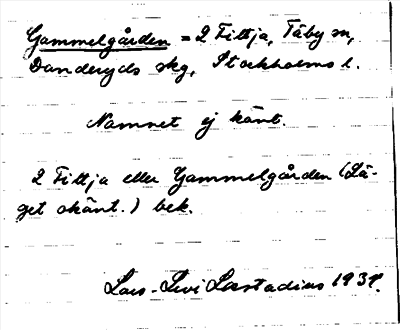 Gammelgården = 2 Fittja, Täby sn,
Danderyds skg, Stockholms l.
Namnet ej känt.
2 Fittja eller Gammelgården (Lä-
get okänt.) bek.
Lars-Levi Læstadius 1931.